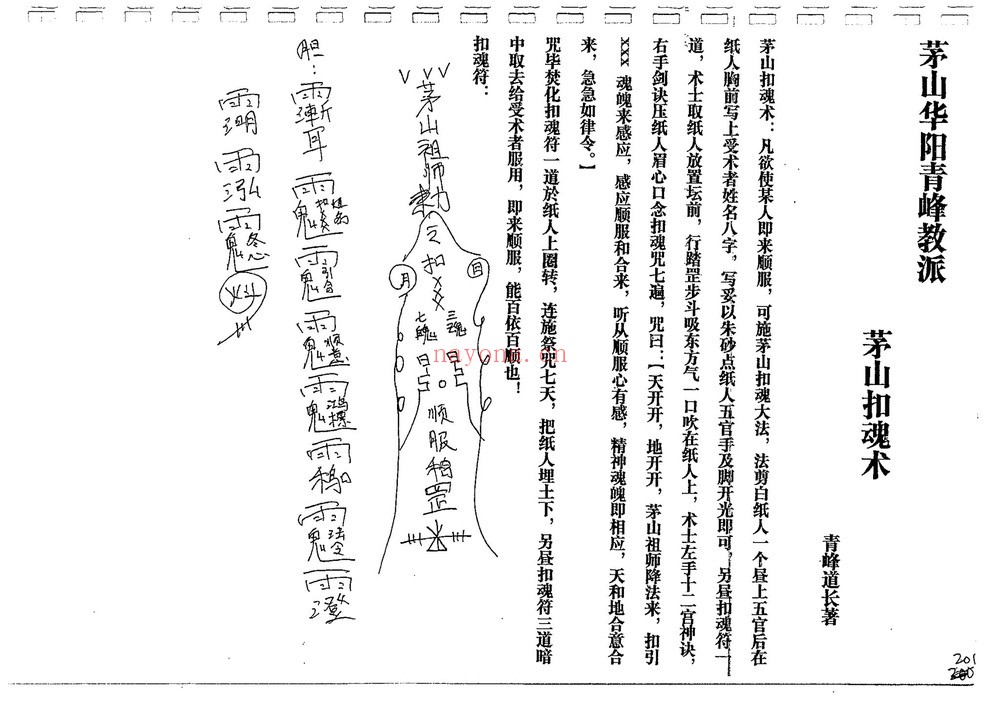 茅山华阳青峰教派
茅山扣魂术
青峰道长著
茅山扣魂术：凡欲使某人即来顺服，可施茅山扣魂大法，法剪白纸人一个昼上五官后在
纸人胸前写上受术者姓名八字，写妥以朱砂点纸人五官手及脚开光即可，另昼扣魂符一
道，术士取纸人放置坛前，行踏罡步斗吸东方气一口吹在纸人上，术士左手十二宫神诀，
右手剑诀压纸人眉心口念扣魂咒七遍，咒曰：【天开开，地开开，茅山祖师降法来，扣引
XXX 魂魄来感应，感应顺服和合来，听从顺服心有感，精神魂魄即相应，天和地合意合
来，急急如律令。】
咒毕焚化扣魂符一道於纸人上圈转，连施祭咒七天，把纸人埋土下，另昼扣魂符三道暗
中取去给受术者服用，即来顺服，能百依百顺也！
扣魂符：
茅山祖师勅
扣XX
日
月
三魂
七魄
顺服
罡
胆：
201
nayona.cn